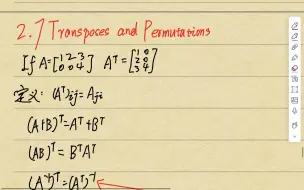 2.7 Transposes and Permutations
If A=[1 2 3; 0 0 4] Aᵀ=[1 0; 2 0; 3 4]
定义: (Aᵀ)ij=Aji
(A+B)ᵀ=Aᵀ+Bᵀ
(AB)ᵀ=BᵀAᵀ
(A⁻¹)ᵀ=(Aᵀ)⁻¹